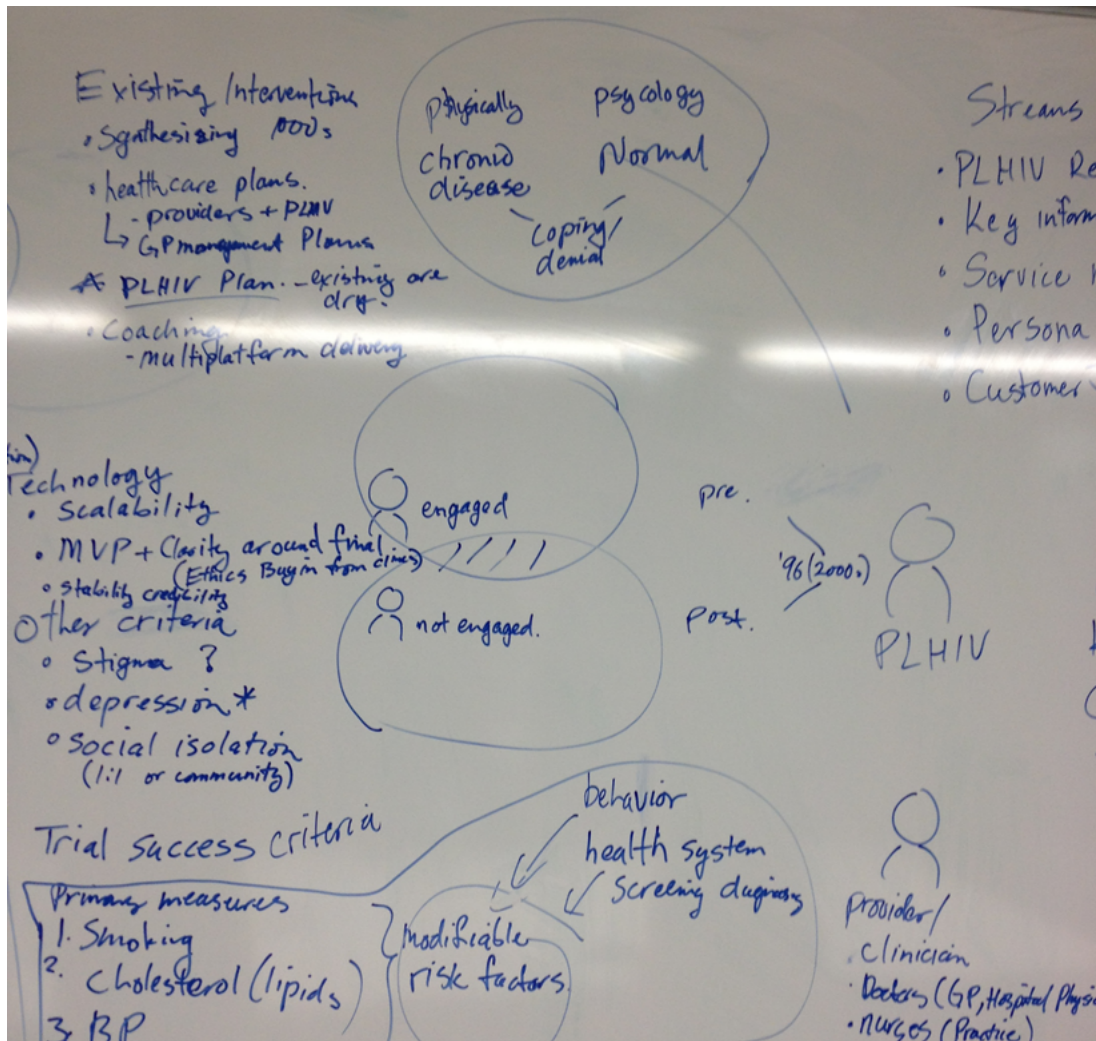 Existing Interventions
• Synthesizing
• healthcare plans.
- providers +
↳ GP management Plans
PLHIV Plan. - existing are
dry.
• Coaching
- multiplatform delivery
physically
chronic
disease
psycology
Normal
coping/
denial
Streams
• PLHIV Re
• Key inform
• Service
• Persona
• Customer
Technology
• Scalability
• MVP + Clarity around final
(Ethics Buy in from clinics)
• stability credibility
Other criteria
• Stigma ?
• depression *
• social isolation
(1:1 or community)
engaged
not engaged.
pre.
'96 (2000.)
post.
PLHIV
Trial success criteria
Primary measures
1. Smoking
2. Cholesterol (lipids)
3. BP
modifiable
risk factors.
behavior
health system
screening
provider/
• Clinician
• Doctors (GP, Hospital Physi
• nurses (Practice)